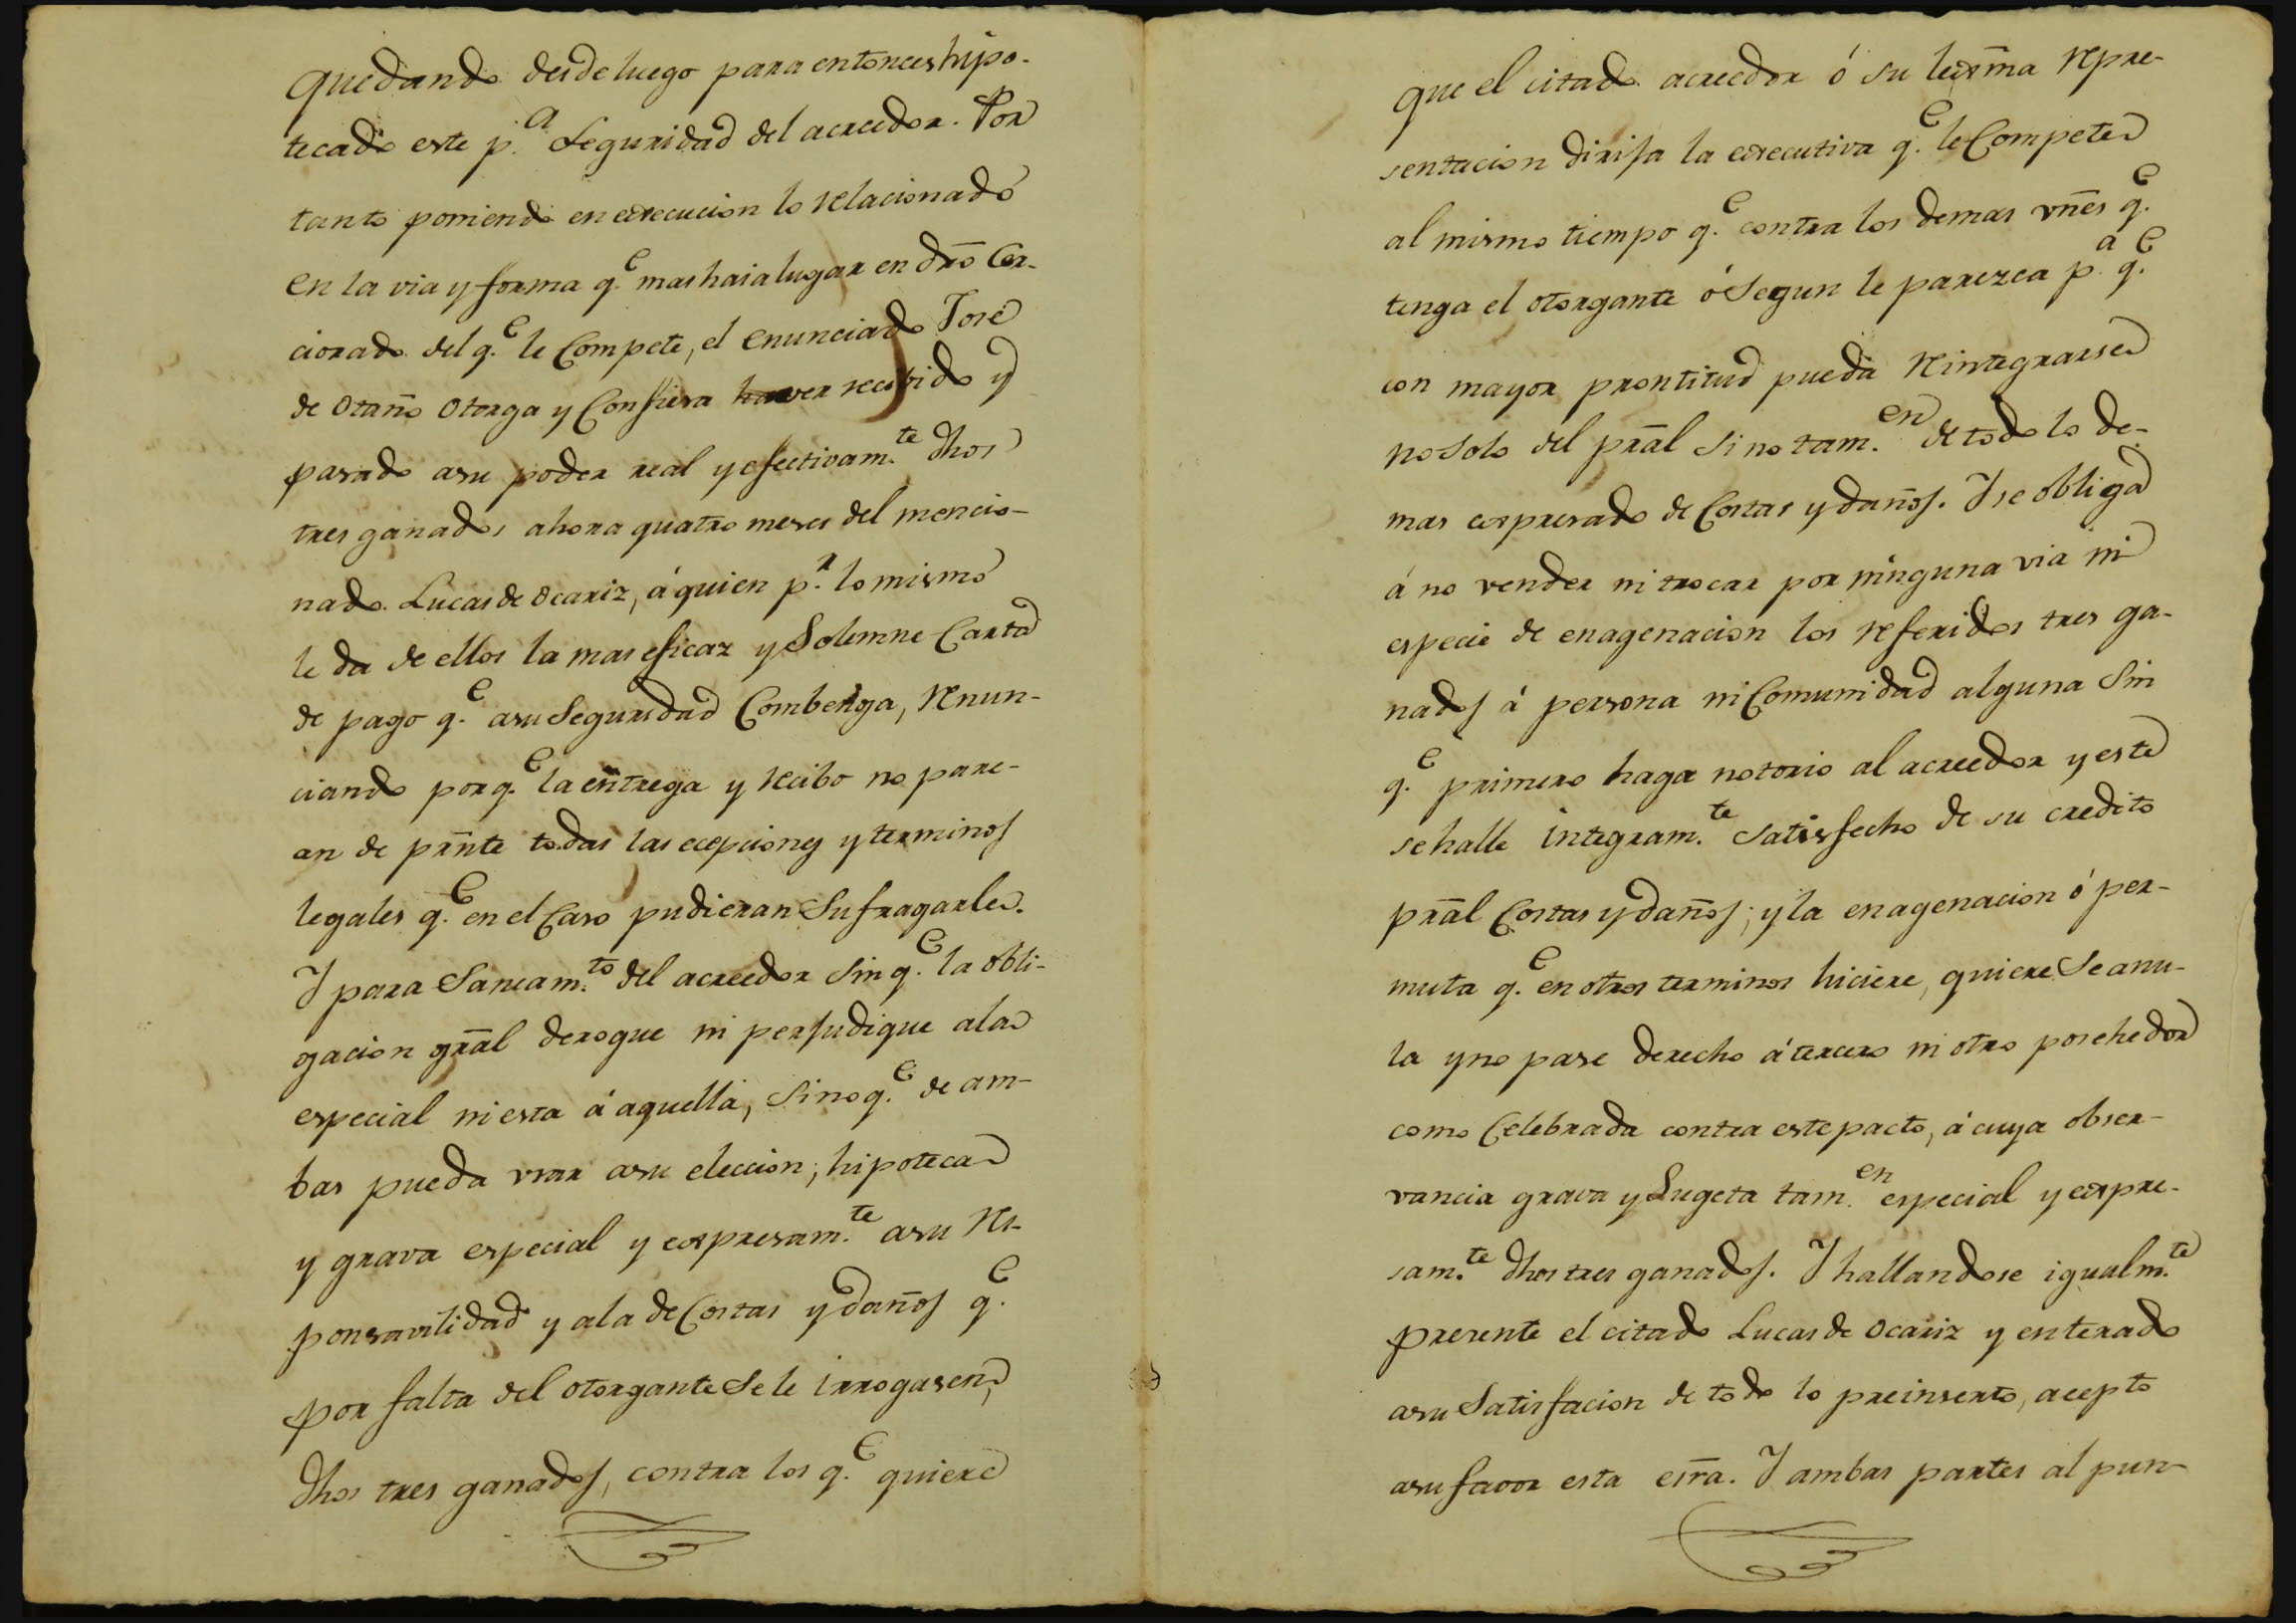 quedando desde luego para entonces hipo-
tecado este p.a Seguridad del acreedor. Por
tanto poniendo en execucion lo relacionado
en la via y forma q.e mas haia lugar en dr̃o Cer-
ciorado del q.e le Compete, el enunciado Jose
de Otaño otorga y Confiesa haver recibido y
pasado a su poder real y efectivam.te dhos
tres ganados ahora quatro meses del mencio-
nado Lucas de Ocariz, á quien p.r lo mismo
le da de ellos la mas eficaz y Solemne Carta
de pago q.e a su Seguridad Combenga, renun-
ciando porq.e la entrega y recibo no pare-
cen de prñte todas las ecepciones y terminos
legales q.e en el Caso pudieran Sufragarle.
Y para Saneam.to del acreedor Sin q.e la obli-
gacion grãl derogue ni perjudique a la
especial ni esta á aquella, Sino q.e de am-
bas pueda vsar a su eleccion; hipoteca
y grava especial y expresam.te a su res-
ponsavilidad y a la de Costas y daños q.e
por falta del otorgante Se le irrogasen,
dhos tres ganados, contra los q.e quiere
que el citado acreedor ó su lexm̃a repre-
sentacion dirija la execucutiva q.e le Compete
al mismo tiempo q.e contra los demas vñes q.e
tenga el otorgante ó Segun le parezca p.a q.e
con mayor prontitud pueda reintegrarse
no Solo del prãl Sino tam.en de todo lo de-
mas expresado de Costas y daños. Y se obliga
á no vender ni trocar por ninguna via ni
especie de enagenacion los referidos tres ga-
nados á persona ni Comunidad alguna Sin
q.e primero haga notorio al acreedor y este
se halle integram.te Satisfecho de su credito
prãl Costas y daños; y la enagenacion ó per-
muta q.e en otros terminos hiciere, quiere Se anu-
la y no pase derecho á tercero ni otro posehedor
como Celebrada contra este pacto, á cuya obser-
vancia grava y Sugeta tam.en especial y expre-
sam.te dhos tres ganados. Y hallandose igualm.te
presente el citado Lucas de Ocariz y enterado
a su Satisfacion de todo lo preinserto, acepto
a su favor esta esr̃a. Y ambas partes al pun-